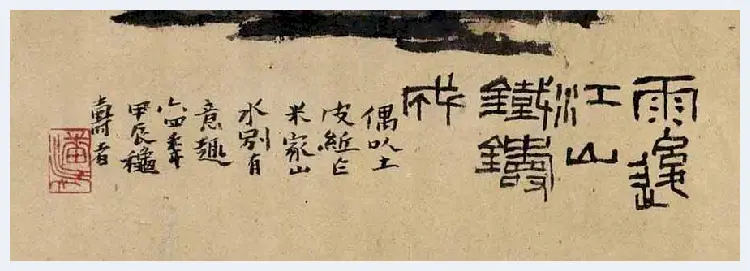 雨後
江山
鐵鑄
成
偶以土
皮紙作
米家山
水別有
意趣
六四年
甲辰龝
壽者